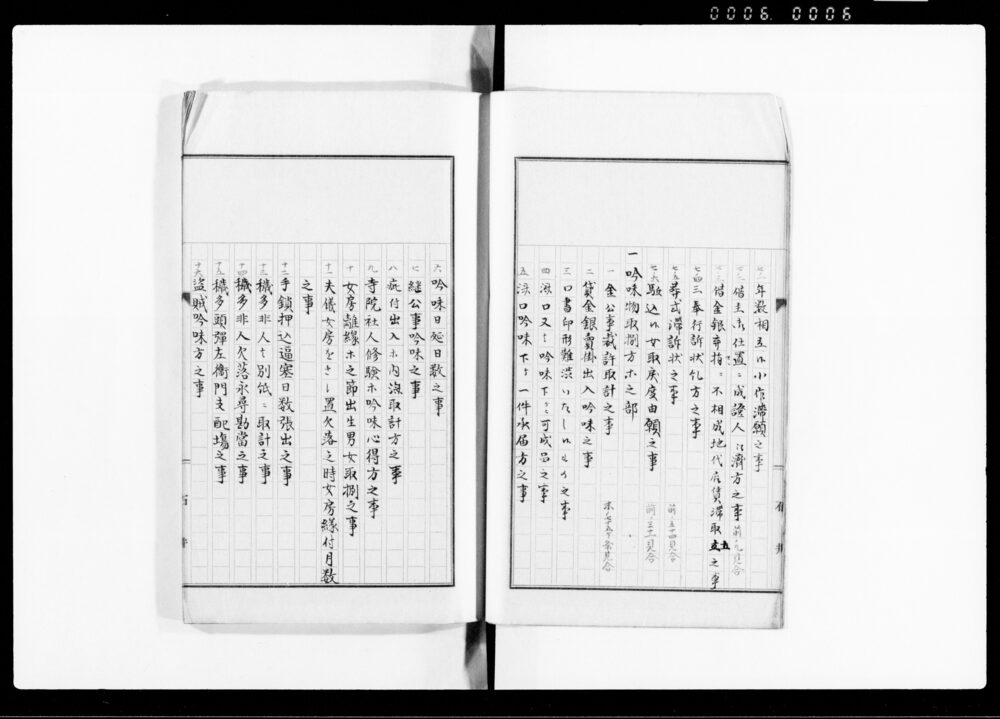 0006 0006
七十一 年数相立候小作滞願之事
七十二 借主御仕置ニ成證人江済方之事 前ノ九見合
七十三 借金銀奉指ニ不相成地代店賃滞取立之事
七十四 三奉行訴状糺方之事
七十五 葬式滞訴状之事 前ノ五十四見合
七十六 駆込候女取戻度由願之事 前ノ三十一見合
一 吟味物取捌方ホ之部
一 金公事裁許取計之事 末ノ七十五ケ条見合
二 貸金銀賣掛出入吟味之事
三 口書印形難渋いたし候もの之事
四 済口又ハ吟味下ケニ可成品之事
五 済口吟味下ケ一件承届方之事
石井
六 吟味日延日数之事
七 継公事吟味之事
八 疵付出入ホ内済取計方之事
九 寺院社人修験ホ吟味心得方之事
十 女房離縁ホ之節出生男女取捌之事
十一 夫儀女房を さし置欠落之時女房縁付月数
之事
十二 手鎖押込逼塞日数張出之事
十三 穢多非人ハ別紙ニ取計之事
十四 穢多非人欠落永尋勘當之事
十五 穢多頭彈左衛門支配場之事
十六 盗賊吟味方之事
石井